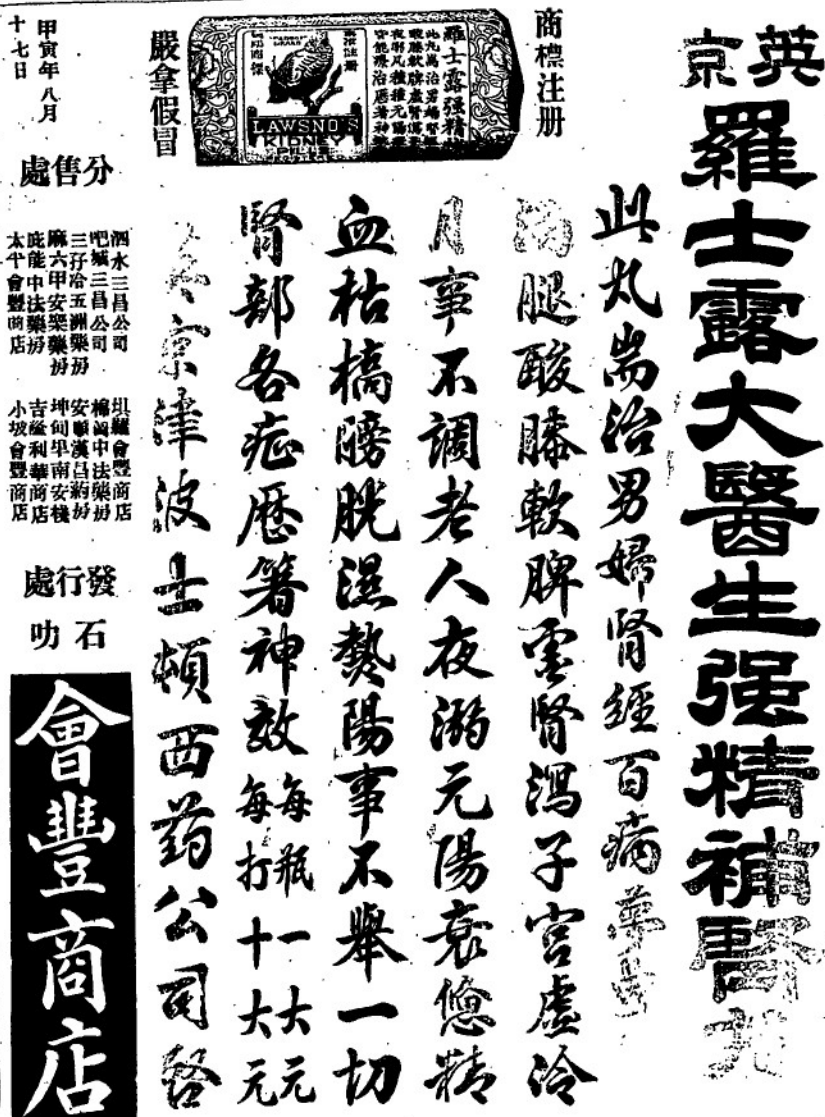 英京
羅士露大醫生强精補腎丸
此丸耑治男婦腎經百病
腿酸膝軟脾虛腎瀉子宮虛冷
月事不調老人夜溺元陽衰憊精
血枯槁膀胱濕熱陽事不舉一切
腎部各症歷著神效每瓶一大元每打十大元
京津波士頓西药公司啓
商標注册
羅士露强精
LAWSNO'S
KIDNEY
PILLS
嚴拿假冒
甲寅年八月
十七日
分售處
泗水三昌公司
吧城三昌公司
三孖冶五洲藥房
麻六甲安樂藥房
庇能中法藥房
太平會豐商店
壩羅會豐商店
棉蘭中法藥房
安順漢昌葯房
坤甸埠南安棧
吉隆利華商店
小坡會豐商店
發行處
石叻
會豐商店